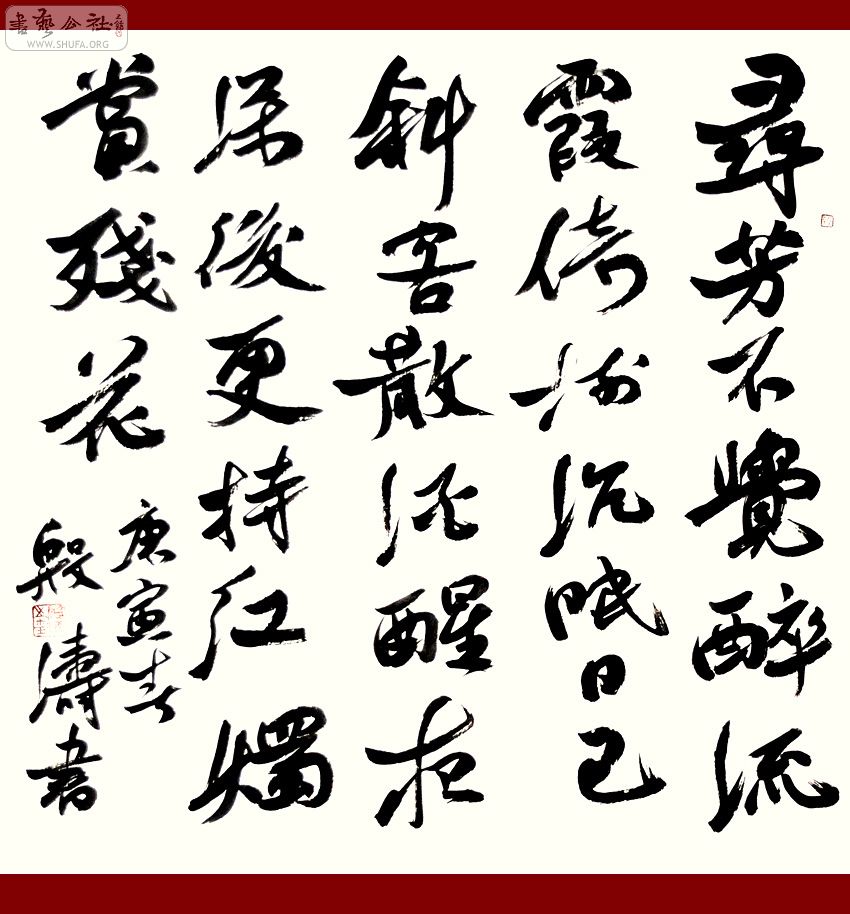 書藝公社
WWW.SHUFA.ORG
尋芳不覺醉流
霞倚樹沉眠日已
斜客散酒醒夜
深後更持紅燭
賞殘花
庚寅春
殷濤書